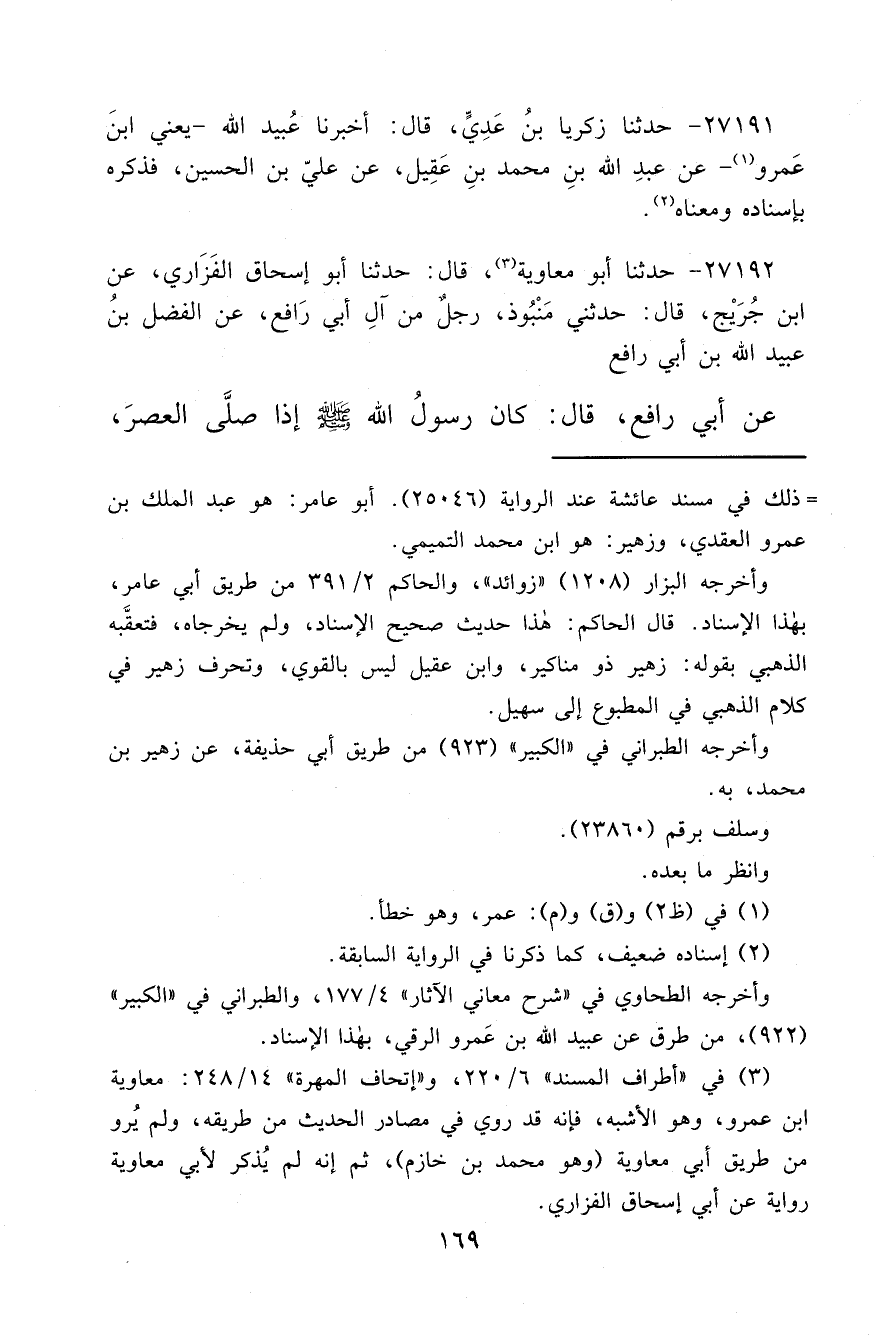 ٢٧١٩١- حدثنا زكريا بنُ عَدِيٍّ، قال: أخبرنا عُبيد الله -يعني ابنَ
عَمرو(١)- عن عبدِ الله بنِ محمد بنِ عَقِيل، عن عليّ بن الحسين، فذكره
بإسناده ومعناه(٢).
٢٧١٩٢- حدثنا أبو معاوية(٣)، قال: حدثنا أبو إسحاق الفَزَاري، عن
ابن جُرَيْج، قال: حدثني مَنْبُوذ، رجلٌ من آلِ أبي رَافع، عن الفضل بنُ
عبيد الله بن أبي رافع
عن أبي رافع، قال: كان رسولُ الله ﷺ إذا صلَّى العصرَ،
= ذلك في مسند عائشة عند الرواية (٢٥٠٤٦). أبو عامر: هو عبد الملك بن
عمرو العقدي، وزهير: هو ابن محمد التميمي.
وأخرجه البزار (١٢٠٨) «زوائد»، والحاكم ٣٩١/٢ من طريق أبي عامر،
بهٰذا الإسناد. قال الحاكم: هٰذا حديث صحيح الإسناد، ولم يخرجاه، فتعقَّبه
الذهبي بقوله: زهير ذو مناكير، وابن عقيل ليس بالقوي، وتحرف زهير في
كلام الذهبي في المطبوع إلى سهيل.
وأخرجه الطبراني في «الكبير» (٩٢٣) من طريق أبي حذيفة، عن زهير بن
محمد، به.
وسلف برقم (٢٣٨٦٠).
وانظر ما بعده.
(١) في (ظ٢) و(ق) و(م): عمر، وهو خطأ.
(٢) إسناده ضعيف، كما ذكرنا في الرواية السابقة.
وأخرجه الطحاوي في «شرح معاني الآثار» ١٧٧/٤، والطبراني في «الكبير»
(٩٢٢)، من طرق عن عبيد الله بن عَمرو الرقي، بهٰذا الإسناد.
(٣) في «أطراف المسند» ٢٢٠/٦، و«إتحاف المهرة» ٢٤٨/١٤: معاوية
ابن عمرو، وهو الأشبه، فإنه قد روي في مصادر الحديث من طريقه، ولم يُرو
من طريق أبي معاوية (وهو محمد بن خازم)، ثم إنه لم يُذكر لأبي معاوية
رواية عن أبي إسحاق الفزاري.
١٦٩